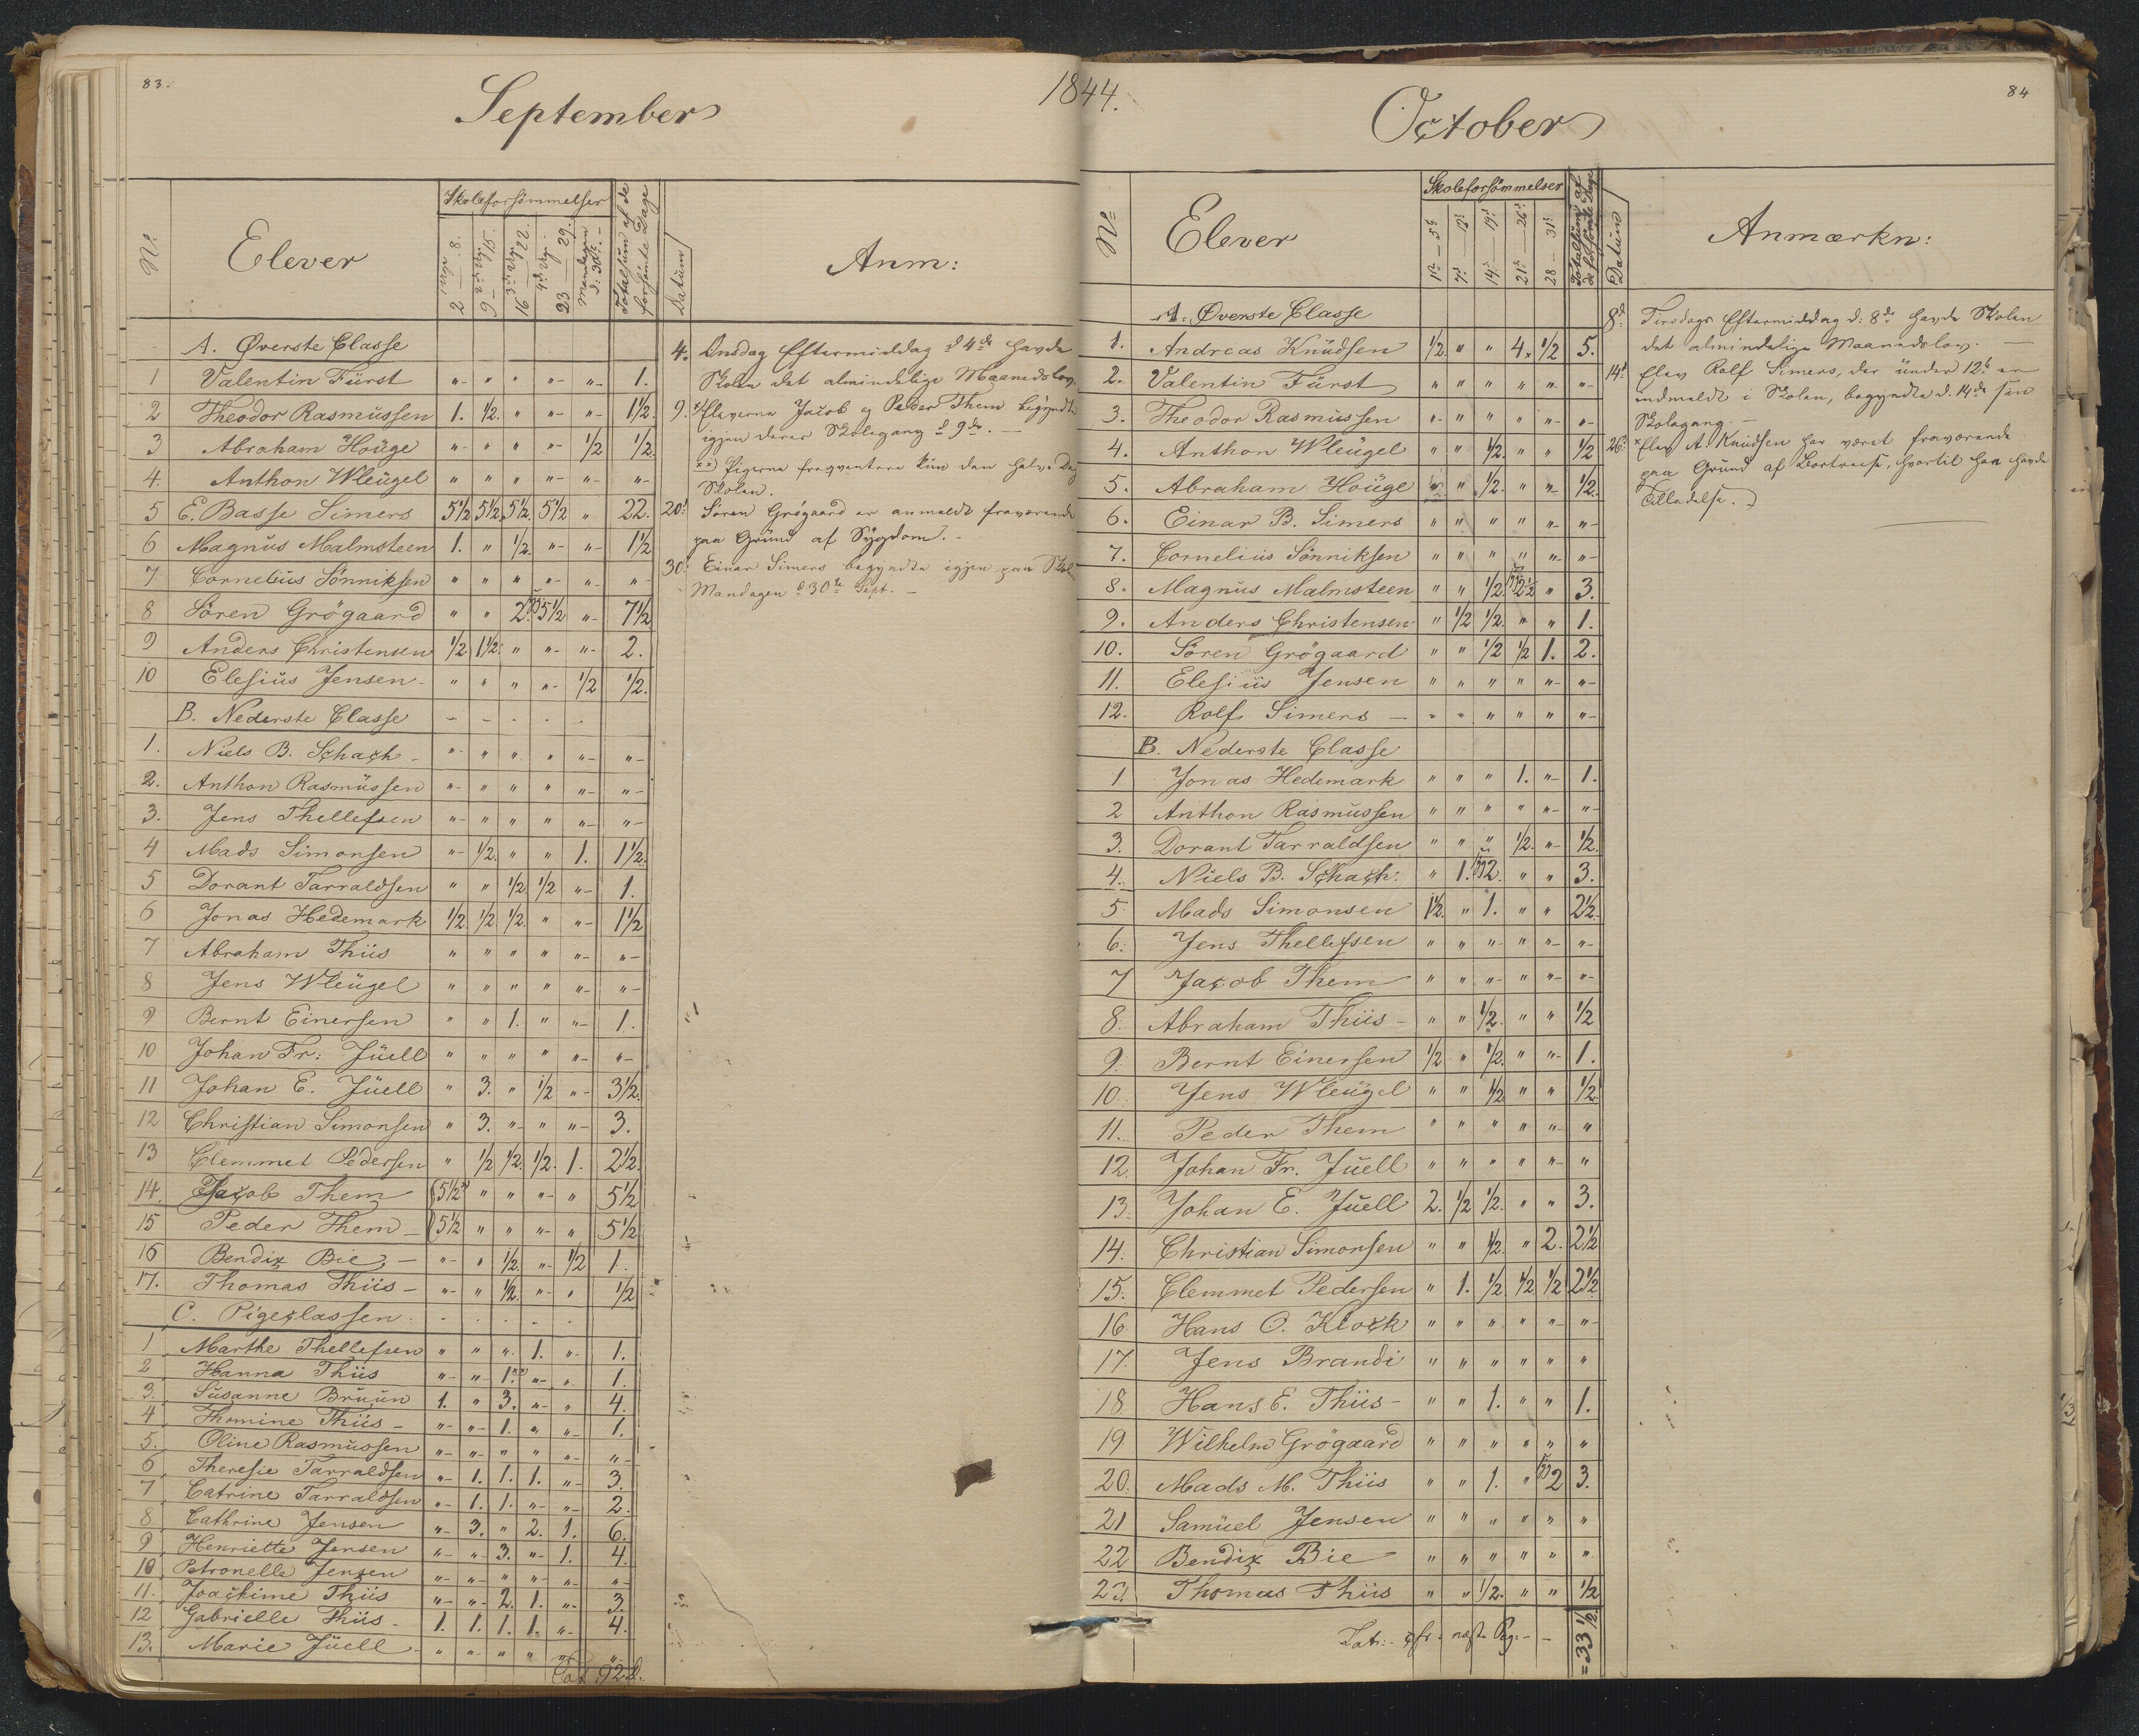 83.
September
1844.
No
Elever
Skoleforsömmelser
Totalsum af de forsömte Dage
Datum
Anm:
2 8.
9 15.
16 22.
23 29.
Mandagen d: 30te
A. Øverste Classe
1 Valentin Fürst " " " " " 1.
2 Theodor Rasmüssen 1. ½. " " " 1½
3 Abraham Houge " " " " ½ ½.
4. Anthon Wleügel " " " " " "
5 E. Basse Simers 5½ 5½. 5½. 5½ " 22.
6 Magnus Malmsteen 1. " ½. " " 1½
7 Cornelius Sönniksen " " " " " "
8 Sören Grögaard " " 2. 5½ " 7½
9 Anders Christensen ½ 1½. " " " 2.
10 Elesius Jensen " " " " ½ ½.
B. Nederste Classe
1. Niels B. Schach " " " " " "
2. Anthon Rasmüssen " " " " " "
3. Jens Thellefsen " " " " " "
4 Mads Simonsen " ½. " " 1. 1½.
5 Dorant Tarraldsen " " ½ ½ " 1.
6 Jonas Hedemark ½. ½ ½. " " 1½
7 Abraham Thiis " " " " " "
8 Jens Wleügel " " " " " "
9 Bernt Einersen " " 1. " " 1.
10 Johan Fr: Jüell " " " " " "
11 Johan E. Jüell " 3. " ½ " 3½.
12 Christian Simonsen " 3. " " " 3.
13 Clemmet Pedersen " ½ ½. ½. 1. 2½.
14. Jacob Them 5½ " " " " 5½
15 Peder Them 5½ " " " " 5½
16 Bendix Bie " " ½. " ½ 1.
17. Thomas Thiis " " ½. " " ½
C. Pigeclassen.
1 Marthe Thellefsen " " " 1. " 1.
2 Hanna Thiis " " 1.xx) " " 1.
3. Susanne Bruun 1. " 3. " " 4.
4 Thomine Thiis " " 1. " " 1.
5. Oline Rasmüssen " " " " " "
6 Theresie Tarraldsen " 1. 1. 1. " 3.
7 Catrine Tarraldsen " 1. 1. " " 2.
8 Cathrine Jensen " 3. " 2. 1. 6.
9 Henriette Jensen " " 3. " 1. 4.
10 Petronelle Jensen " " " " " "
11. Joachime Thiis " " 2. 1. " 3.
12 Gabrielle Thiis 1. 1. 1. 1. " 4.
13. Marie Jüell " " " " " "
Tot 92 d.
4. Onsdag Eftermiddag d 4de havde
Skolen det almindelige Maanedslov.
9. x) Eleverne Jacob og Peder Them begyndte
igjen deres Skolegang d 9de.
xx) Pigerne freqventere kun den halve Dag
Skolen.
20d Sören Grögaard er anmeldt fraværende
paa Grund af Sygdom.
30. Einar Simers begyndte igjen paa Skolen
Mandagen d 30te Sept.
84
October
No
Elever
Skoleforsömmelser
Totalsum af de forsömte Dage
Datum
Anmærkn:
1ste — 5te
7d — 12d
14d — 19d
21d — 26d
28 — 31d
A. Øverste Classe
1. Andreas Knüdsen ½. " " 4. ½ 5.
2. Valentin Fürst " " " " " "
3. Theodor Rasmüssen " " " " " "
4. Anthon Wleügel " " ½. " " ½
5. Abraham Houge " " ½. " " ½.
6. Einar B. Simers " " " " " "
7. Cornelius Sönniksen " " " " " "
8. Magnus Malmsteen " " ½. 2½ " 3.
9. Anders Christensen " ½ ½. " " 1.
10. Sören Grögaard " " ½ ½ 1. 2.
11. Elesius Jensen " " " " " "
12. Rolf Simers " " " " " "
B. Nederste Classe
1 Jonas Hedemark " " " 1. " 1.
2 Anthon Rasmussen " " " " " "
3. Dorant Tarraldsen " " " ½. " ½.
4. Niels B. Schach: " 1. 2. " " 3.
5. Mads Simonsen 1½. " 1. " " 2½.
6. Jens Thellefsen " " " " " "
7 Jacob Them " " " " " "
8. Abraham Thiis " " ½. " " ½
9. Bernt Einersen ½ " ½. " " 1.
10. Jens Wleügel " " ½ " " ½.
11. Peder Them " " " " " "
12. Johan Fr. Jüell " " " " " "
13. Johan E. Jüell 2. ½ ½. " " 3.
14. Christian Simonsen " " ½. " 2. 2½
15. Clemmet Pedersen " 1. ½. ½ ½ 2½
16 Hans O. Klock " " " " " "
17. Jens Brandi " " " " " "
18. Hans E. Thiis " " 1. " " 1.
19 Wilhelm Grögaard " " " " " "
20. Mads M. Thiis " " 1. " 2 3.
21 Samüel Jensen " " " " " "
22 Bendix Bie " " " " " "
23. Thomas Thiis " " ½. " " ½
Lat: cfr. næste Pg. = 33½.
8d Tirsdags Eftermiddag d: 8de havde Skolen
det almindelige Maanedslov.
14d Elev Rolf Simers, der under 12te er
indmeldt i Skolen, begyndte d. 14de sin
Skolegang.
26d x Elev A. Knüdsen har været fraværende
paa Grund af Bortreise, hvortil han havde
Tilladelse.